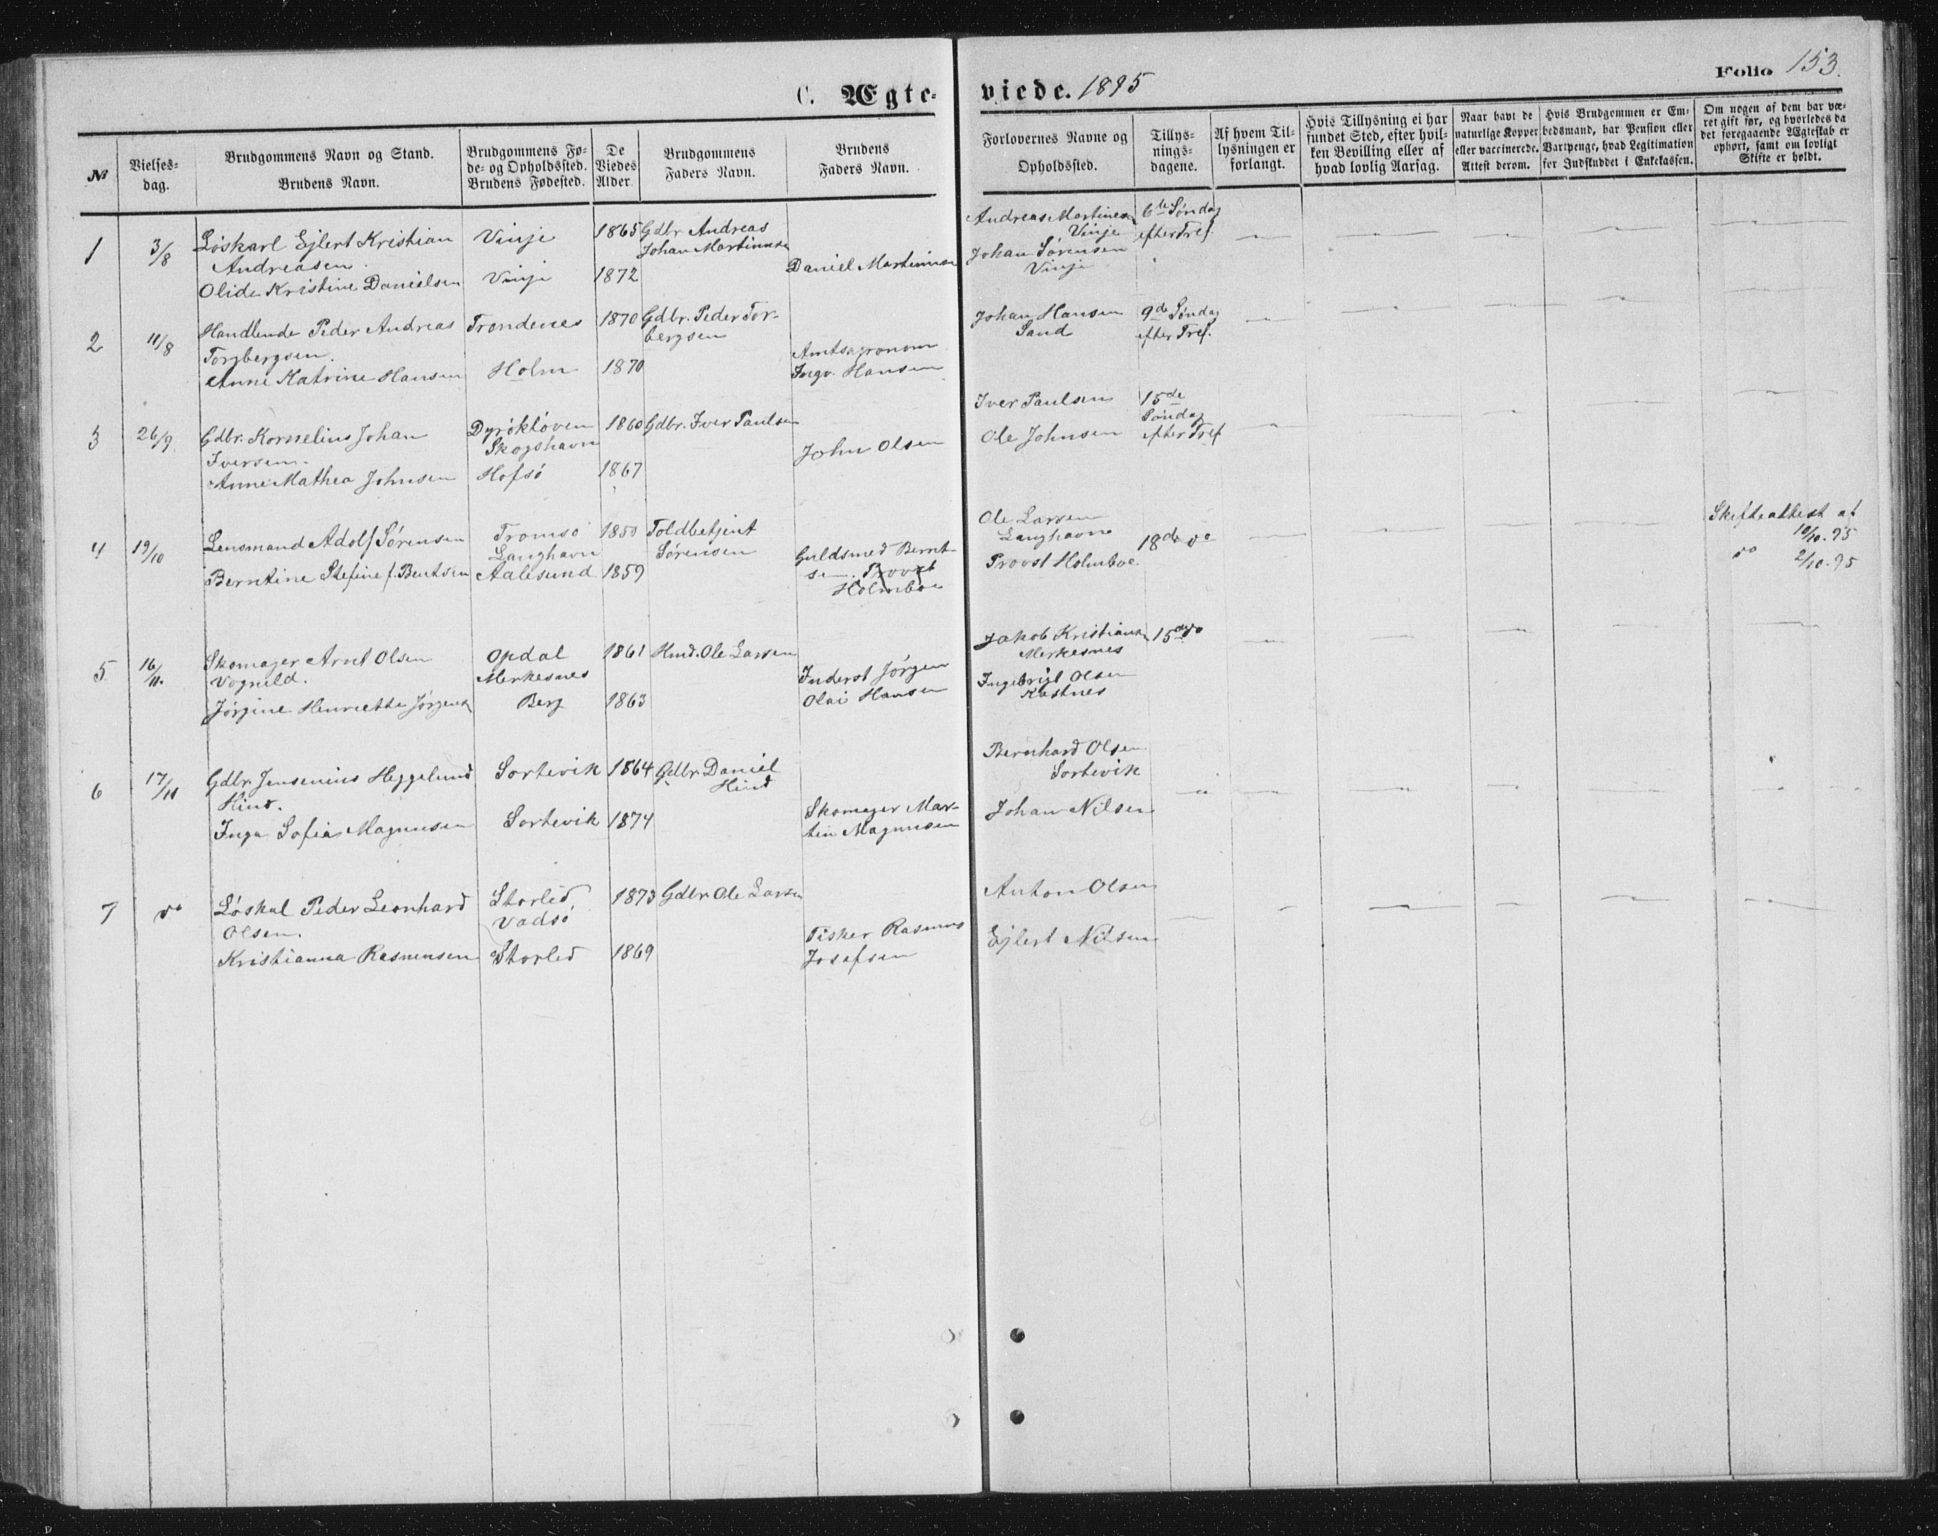 C. Ægte-
viede. 1895
Folio 153.
№
Vielses-
dag.
Brudgommens Navn og Stand.
Brudens Navn.
Brudgommens Fø-
de- og Opholdssted.
Brudens Fødested.
De
Viedes
Alder.
Brudgommens
Faders Navn.
Brudens
Faders Navn.
Forlovernes Navne og
Opholdssted.
Tillys-
nings-
dagene.
Af hvem Til-
lysningen er
forlangt.
Hvis Tillysning ei har
fundet Sted, efter hvil-
ken Bevilling eller af
hvad lovlig Aarsag.
Naar havt de
naturlige Kopper
eller vaccinerede.
Attest derom.
Hvis Brudgommen er Em-
bedsmand, har Pension eller
Vartpenge, hvad Legitimation
for Indskuddet i Enkekassen.
Om nogen af dem har væ-
ret gift før, og hvorledes da
det foregaaende Ægteskab er
ophørt, samt om lovligt
Skifte er holdt.
1
3/8
Løskarl Ejlert Kristian
Andreasen.
Olide Kristine Danielsen
Vinje
Vinje
1865
1872
Gdbr Andreas
Johan Martinusen
Daniel Martinusen
Andreas Martinesen
Vinje
Johan Sørensen
Vinje
6te Søndag
efter Tref.
2
11/8
Handlende Peder Andreas
Torgbergsen.
Anne Katrine Hansen
Trondenes
Holm
1870
1870
Gdbr. Peder Tor-
bergsen
Amtsagronom
Ingv. Hansen
Johan Hansen
Sand
9de Søndag
efter Tref.
3
26/9
Gdbr. Kornelius Johan
Iversen.
Anne Mathea Johnsen
Dyrøkløven
Skogshavn
Hofsø
1860
1867
Gdbr. Iver Paulsen
John Olsen
Iver Paulsen
Ole Johnsen
15de
Søndag
efter Tref
4
19/10
Lensmand Adolf Sørensen
Berntine Stefine f. Bentsen
Tromsø
Langhavn
Aalesund
1850
1859
Toldbetjent
Sørensen
Guldsmed Bernt-
sen. Provst
Holmboe
Ole Larsen
Langhavn
Provst Holmboe
18de do
Skifteattest af
12/10.95
do 2/10.95
5
16/11.
Skomager Arnt Olsen
Vognild.
Jørgine Henriette Jørgens
Opdal
Merkesnes
Berg
1861
1863
Hmd. Ole Larsen
Inderst Jørgen
Olai Hansen
Jakob Kristians
Merkesnes
Ingebrigt Olsen
Kastnes
15de do
6
17/11
Gdbr. Jensenius Heggelund
Hind.
Inga Sofia Magnusen
Sortevik
Sortevik
1864
1874
Gdbr. Daniel
Hind
Skomager Mar-
tin Magnusen
Bernhard Olsen
Sortevik
Johan Nilsen
7
do
Løskal Peder Leonhard
Olsen.
Kristianna Rasmusen
Storlid,
Vadsø
Storlid
1873
1869
Gdbr. Ole Larsen
Fisker Rasmus
Josefsen
Anton Olsen
Ejlert Nilsen